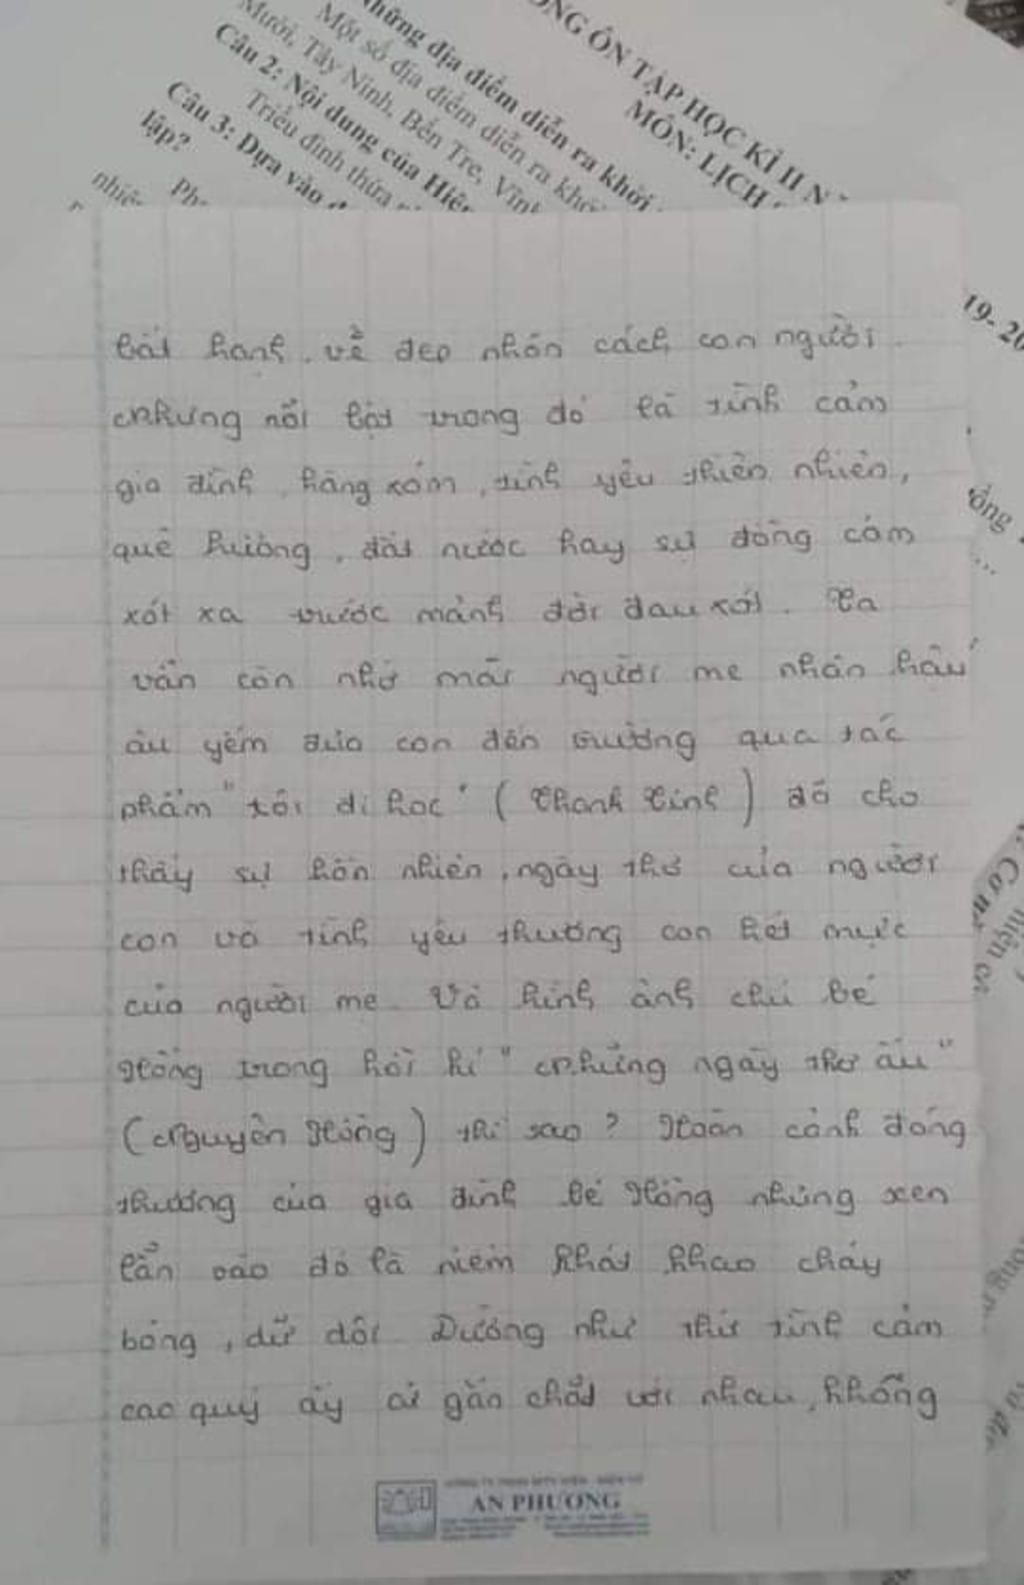 ƠNG ÔN TẬP HỌC KÌ II N
MÔN: LỊCH
Những địa điểm diễn ra khởi
Một số địa điểm diễn ra khởi
Mười, Tây Ninh, Bến Tre, Vĩnh
Câu 2: Nội dung của Hiệ
Triều đình thừa
Câu 3: Dựa vào
lập?
19- 20
bất hạnh, vẻ đẹp nhân cách con người.
Nhưng nổi bật trong đó là tình cảm
gia đình, hàng xóm, tình yêu thiên nhiên,
quê hương, đất nước hay sự đồng cảm
xót xa trước mảnh đời đau xót. Ta
vẫn còn nhớ mãi người mẹ nhân hậu
âu yếm đưa con đến trường qua tác
phẩm "tôi đi học" (Thanh Tịnh) đã cho
thấy sự hồn nhiên, ngây thơ của người
con và tình yêu thương con hết mực
của người mẹ. Và hình ảnh chú bé
Hồng trong hồi kí "Những ngày thơ ấu"
(Nguyên Hồng) thì sao? Hoàn cảnh đáng
thương của gia đình bé Hồng nhưng xen
lẫn vào đó là niềm khát khao cháy
bỏng, dữ dội. Dường như thứ tình cảm
cao quý ấy cứ gắn chặt với nhau, không
AN PHƯƠNG